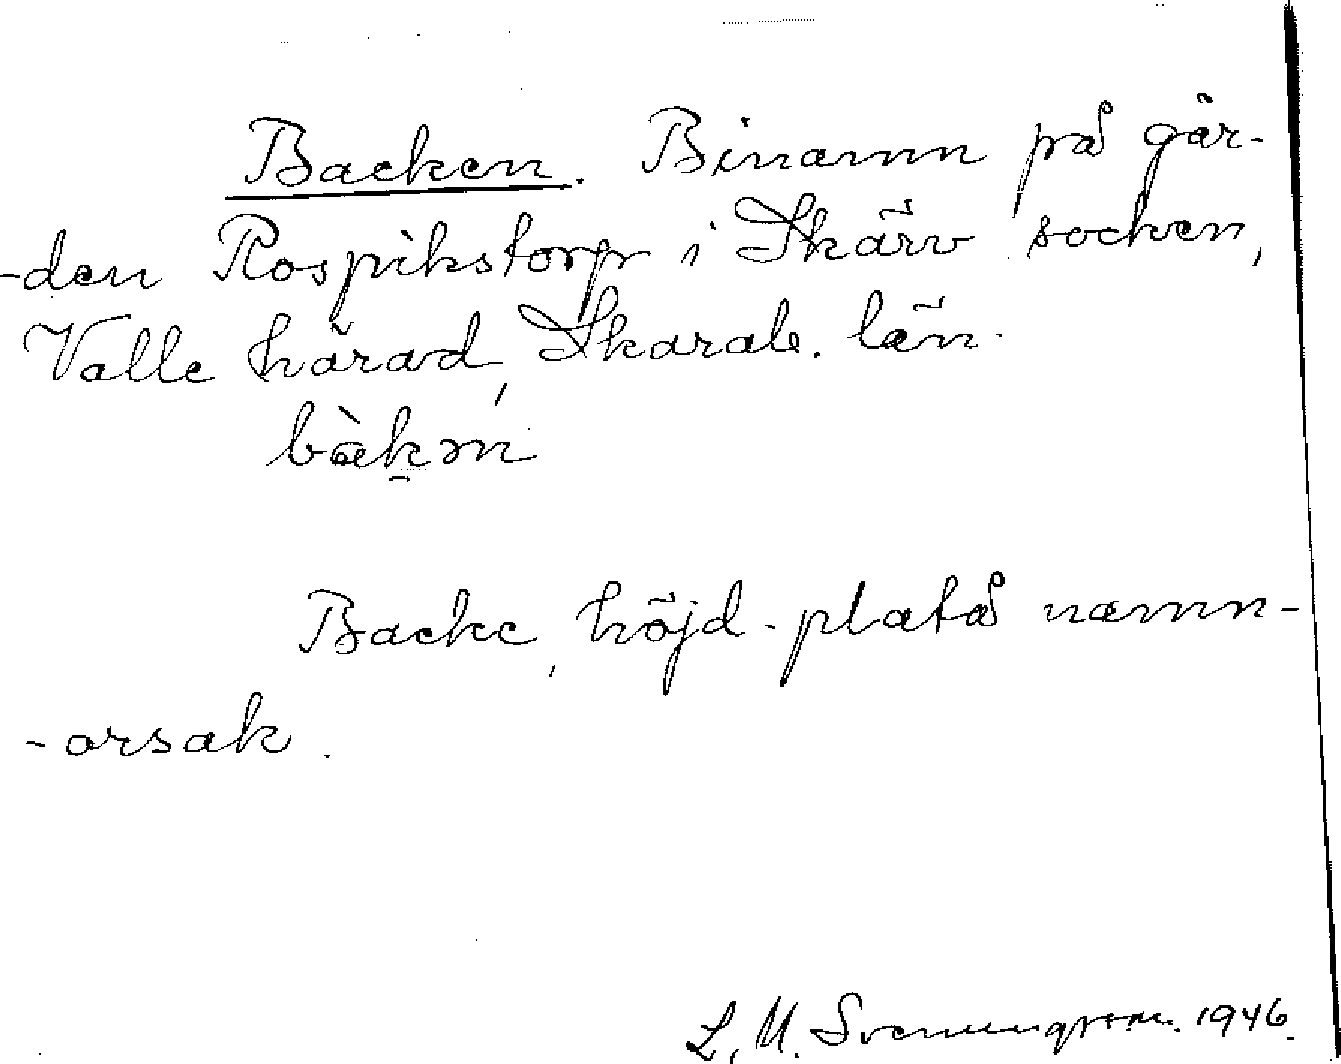 Backen. Binamn på går-
-den Rospikstorp i Skärv socken,
Valle härad, Skarab. län.
bàkm
Backe, höjd-platå namn-
-orsak.
L. M. Svenungsson. 1946.